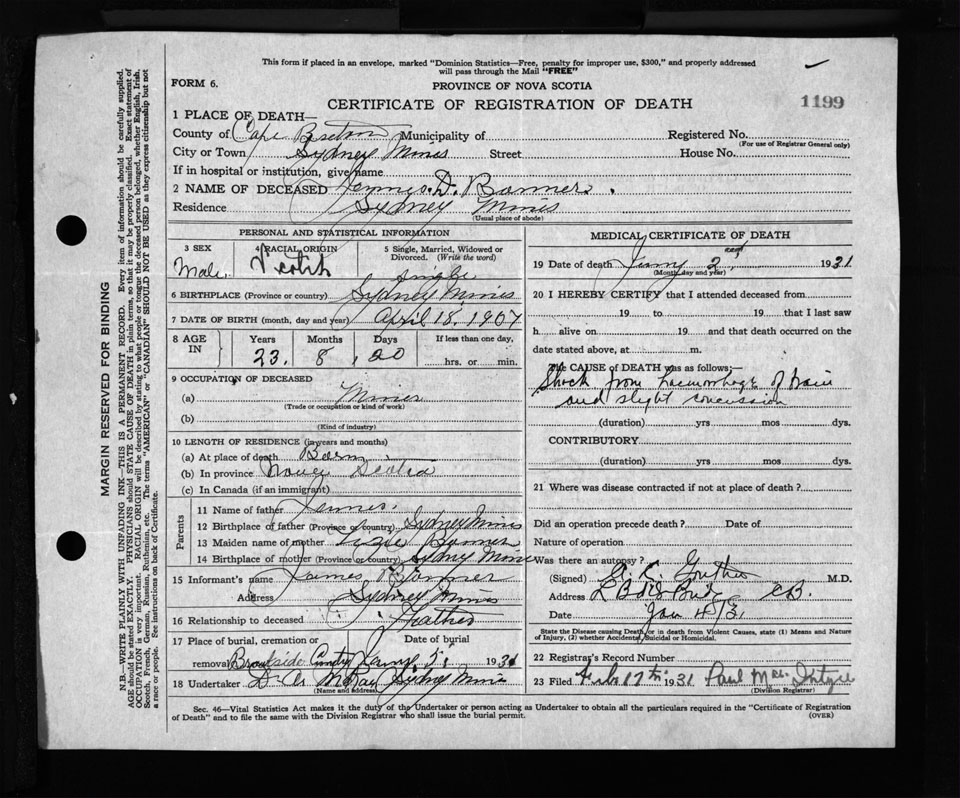 This form if placed in an envelope, marked "Dominion Statistics—Free, penalty for improper use, $300," and properly addressed
will pass through the Mail "FREE"
FORM 6.
PROVINCE OF NOVA SCOTIA
CERTIFICATE OF REGISTRATION OF DEATH
1199
1 PLACE OF DEATH—
County of Cape Breton Municipality of Registered No.
(For use of Registrar General only)
City or Town Sydney Mines Street House No.
If in hospital or institution, give name
2 NAME OF DECEASED D.
Residence Sydney Mines
(Usual place of abode)
PERSONAL AND STATISTICAL INFORMATION
3 SEX 4 RACIAL ORIGIN 5 Single, Married, Widowed or Divorced. (Write the word)
Male Single
6 BIRTHPLACE (Province or country) Sydney Mines
7 DATE OF BIRTH (month, day and year) April 18, 1907
8 AGE IN Years Months Days If less than one day,
23 8 20 hrs. or min.
9 OCCUPATION OF DECEASED
(a) Miner
(Trade or occupation or kind of work)
(b)
(Kind of industry)
10 LENGTH OF RESIDENCE (in years and months)
(a) At place of death Born
(b) In province Nova Scotia
(c) In Canada (if an immigrant)
Parents
11 Name of father James
12 Birthplace of father (Province or country) Sydney Mines
13 Maiden name of mother
14 Birthplace of mother (Province or country) Sydney Mines
15 Informant's name James
Address Sydney Mines
16 Relationship to deceased Father
17 Place of burial, cremation or Date of burial
removal Brookside 5 1931
18 Undertaker Sydney Mines
(Name and address)
MEDICAL CERTIFICATE OF DEATH
19 Date of death 2nd 1931
(Month, day and year)
20 I HEREBY CERTIFY that I attended deceased from
19 to 19 that I last saw
h alive on 19 and that death occurred on the
date stated above, at m.
The CAUSE OF DEATH was as follows:—
Shock from haemorrhage of brain
and slight concussion
(duration) yrs mos dys.
CONTRIBUTORY
(duration) yrs. mos. dys.
21 Where was disease contracted if not at place of death?
Did an operation precede death? Date of
Nature of operation
Was there an autopsy?
(Signed) M.D.
Address C.B.
Date Jan 4/31
State the Disease causing Death, or in death from Violent Causes, state (1) Means and Nature
of Injury, (2) whether Accidental, Suicidal or Homicidal.
22 Registrar's Record Number
23 Filed 17th 1931 Paul
(Division Registrar)
Sec. 46—Vital Statistics Act makes it the duty of the Undertaker or person acting as Undertaker to obtain all the particulars required in the "Certificate of Registration
of Death" and to file the same with the Division Registrar who shall issue the burial permit.
(OVER)
MARGIN RESERVED FOR BINDING
N.B.—WRITE PLAINLY WITH UNFADING INK—THIS IS A PERMANENT RECORD. Every item of information should be carefully supplied.
AGE should be stated EXACTLY. PHYSICIANS should STATE CAUSE OF DEATH in plain terms, so that it may be properly classified. Exact statement of
OCCUPATION is very important. RACIAL ORIGIN will be described by stating to what people or tongue the deceased person belonged, whether English, Irish,
Scotch, French, German, Russian, Ruthenian, etc. The terms "AMERICAN" or "CANADIAN" SHOULD NOT BE USED as they express citizenship but not
a race or people. See instructions on back of Certificate.